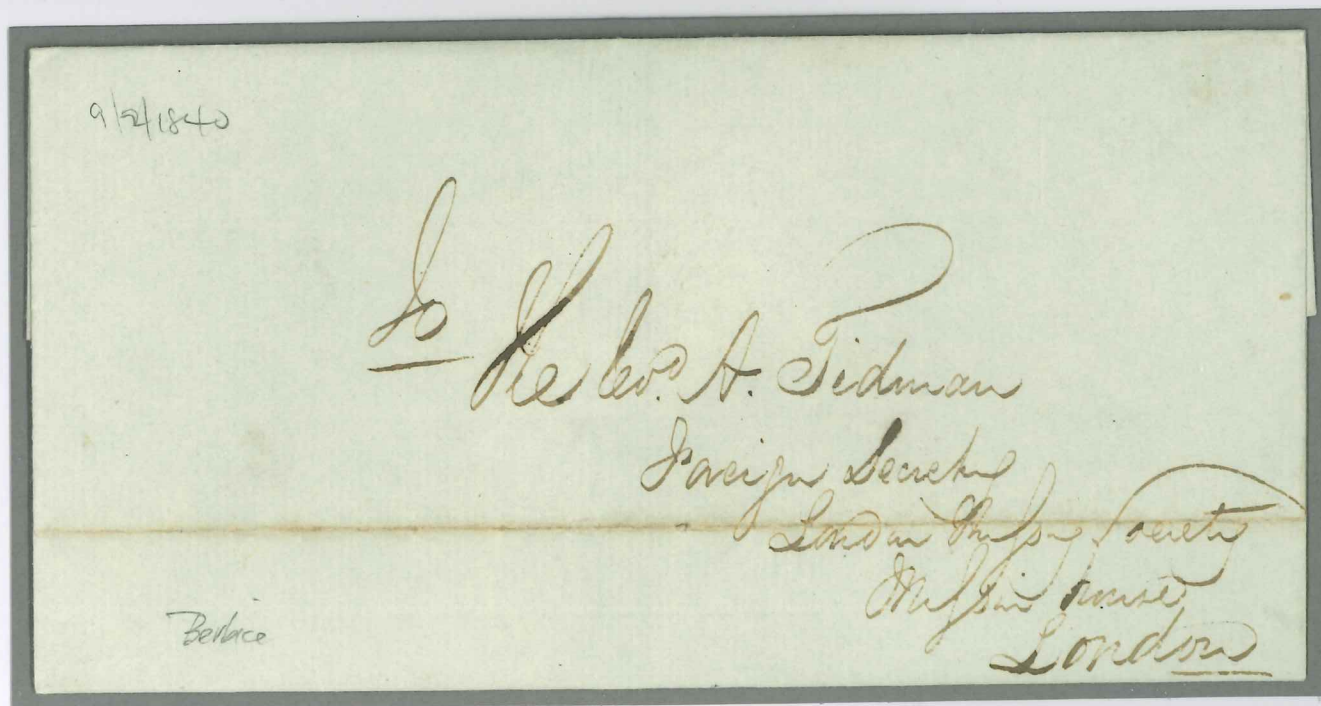 9/2/1840
To
The Revd. A. Tidman
Foreign Secretary
London Missy Society
Mission House
London
Berbice